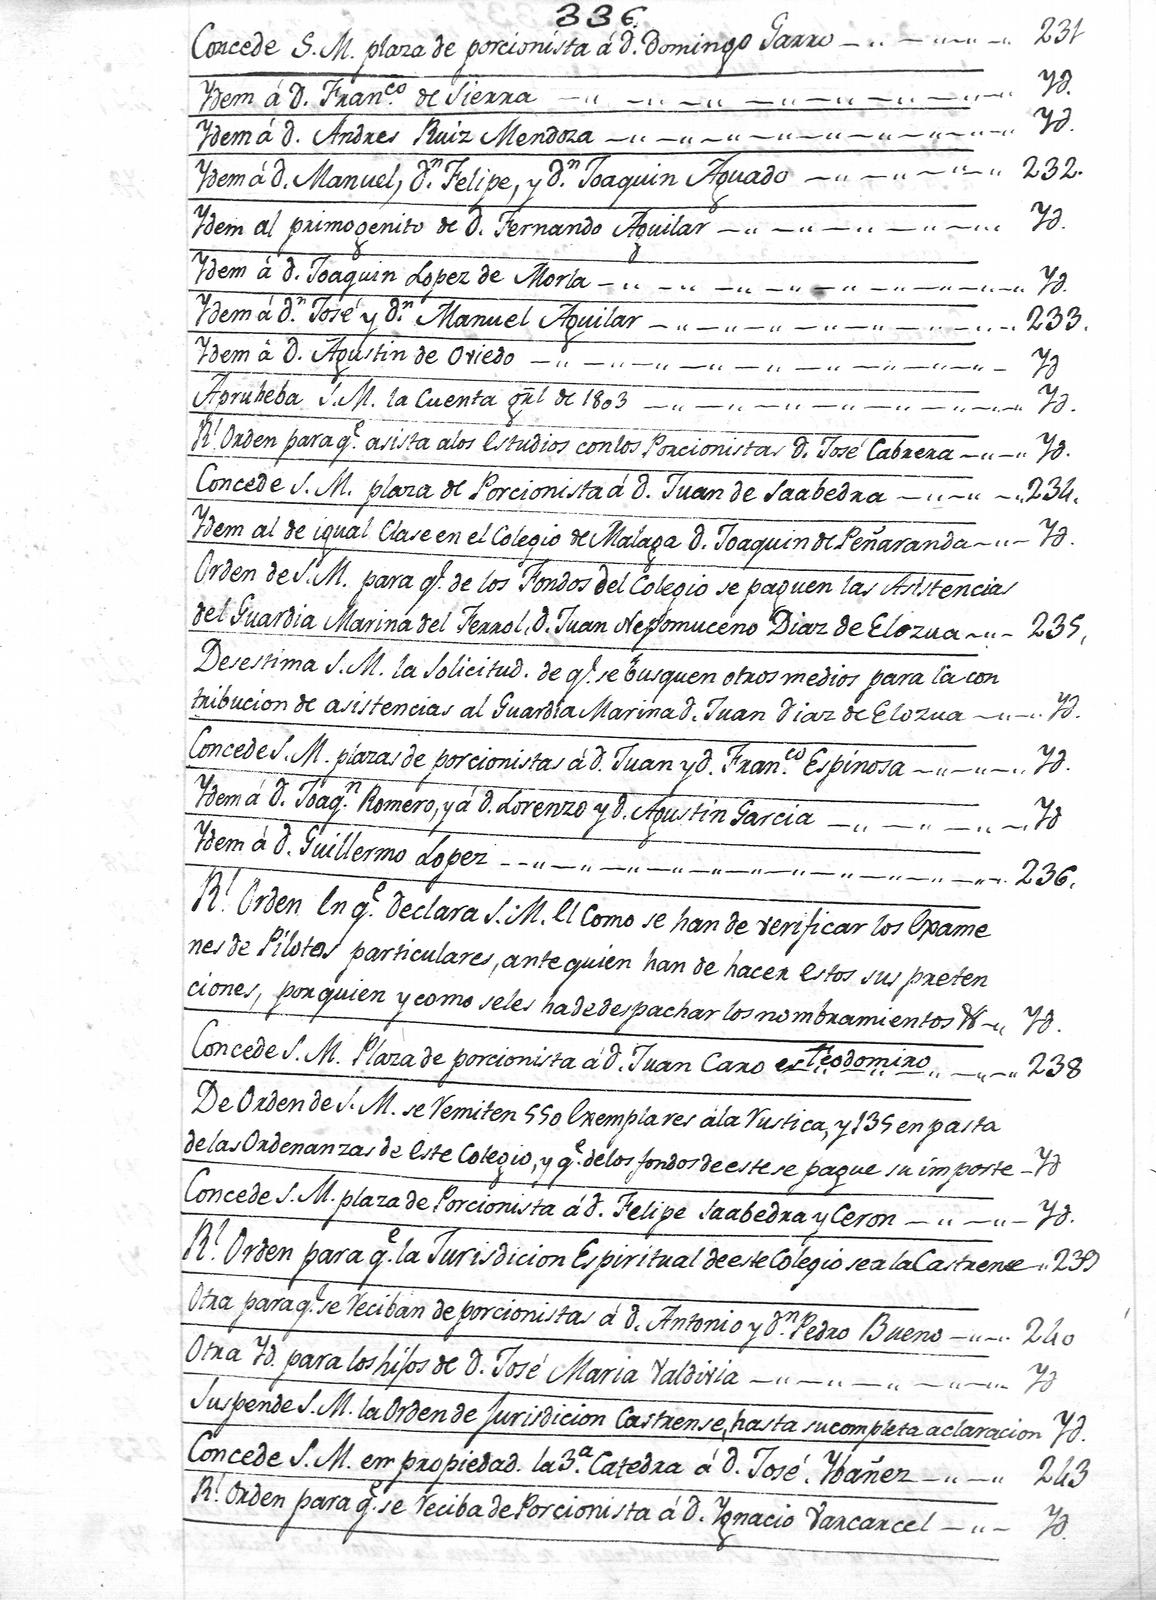 336.
Concede S. M. plaza de porcionista á d. Domingo Garro 231
Ydem á d. Fran.co de Sierra Yd.
Ydem á d. Andres Ruiz Mendoza Yd.
Ydem á d. Manuel, d.n Felipe, y d.n Joaquin Aguado 232.
Ydem al primogenito de d. Fernando Aguilar Yd.
Ydem á d. Joaquin Lopez de Morla Yd.
Ydem á d.n José y d.n Manuel Aguilar 233.
Ydem á d. Agustin de Oviedo Yd
Aprueba S. M. la Cuenta gral de 1803 Yd.
Rl. Orden para q.e asista alos estudios conlos Porcionistas d. José Cabrera Yd.
Concede S. M. plaza de Porcionista á d. Juan de Saabedra 234.
Ydem al de igual Clase en el Colegio de Malaga d. Joaquin de Peñaranda Yd.
Orden de S. M. para q.e de los Fondos del Colegio se paguen las Asistencias
del Guardia Marina del Ferrol, d. Juan Nepomuceno Diaz de Elozua 235,
Desestima S. M. la Solicitud. de q.e se busquen otros medios para la con
tribucion de asistencias al Guardia Marina d. Juan diaz de Elozua Yd.
Concede S. M. plazas de porcionistas á d. Juan y d. Fran.co Espinosa Yd.
Ydem á d. Joaq.n Romero, y á d. Lorenzo y d. Agustin Garcia Yd
Ydem á d. Guillermo Lopez 236.
Rl. Orden en q.e declara S. M. el Como se han de verificar los exame
nes de Pilotos particulares, ante quien han de hacer estos sus preten
ciones, por quien y como seles hade despachar los nombramientos &c Yd.
Concede S. M. Plaza de porcionista á d. Juan Caro es Teodomiro 238
De Orden de S. M. se remiten 550 exemplares ála rustica, y 135 en pasta
de las Ordenanzas de este Colegio, y q.e de los fondos de este se pague su importe Yd
Concede S. M. plaza de Porcionista á d. Felipe Saabedra y Ceron Yd.
Rl. Orden para q.e la Jurisdicion Espiritual de este Colegio sea la Castrense 239
Otra para q.e se reciban de porcionistas á d. Antonio y d.n Pedro Bueno 240
Otra Yd. para los hijos de d. José Maria Valdivia Yd
Suspende S. M. la Orden de Jurisdicion Castrense, hasta su completa aclaracion Yd.
Concede S. M. em propiedad. la 3.a Catedra á d. José Ybañez 243
Rl. Orden para q.e se reciba de Porcionista á d. Ygnacio Varcarcel Yd.